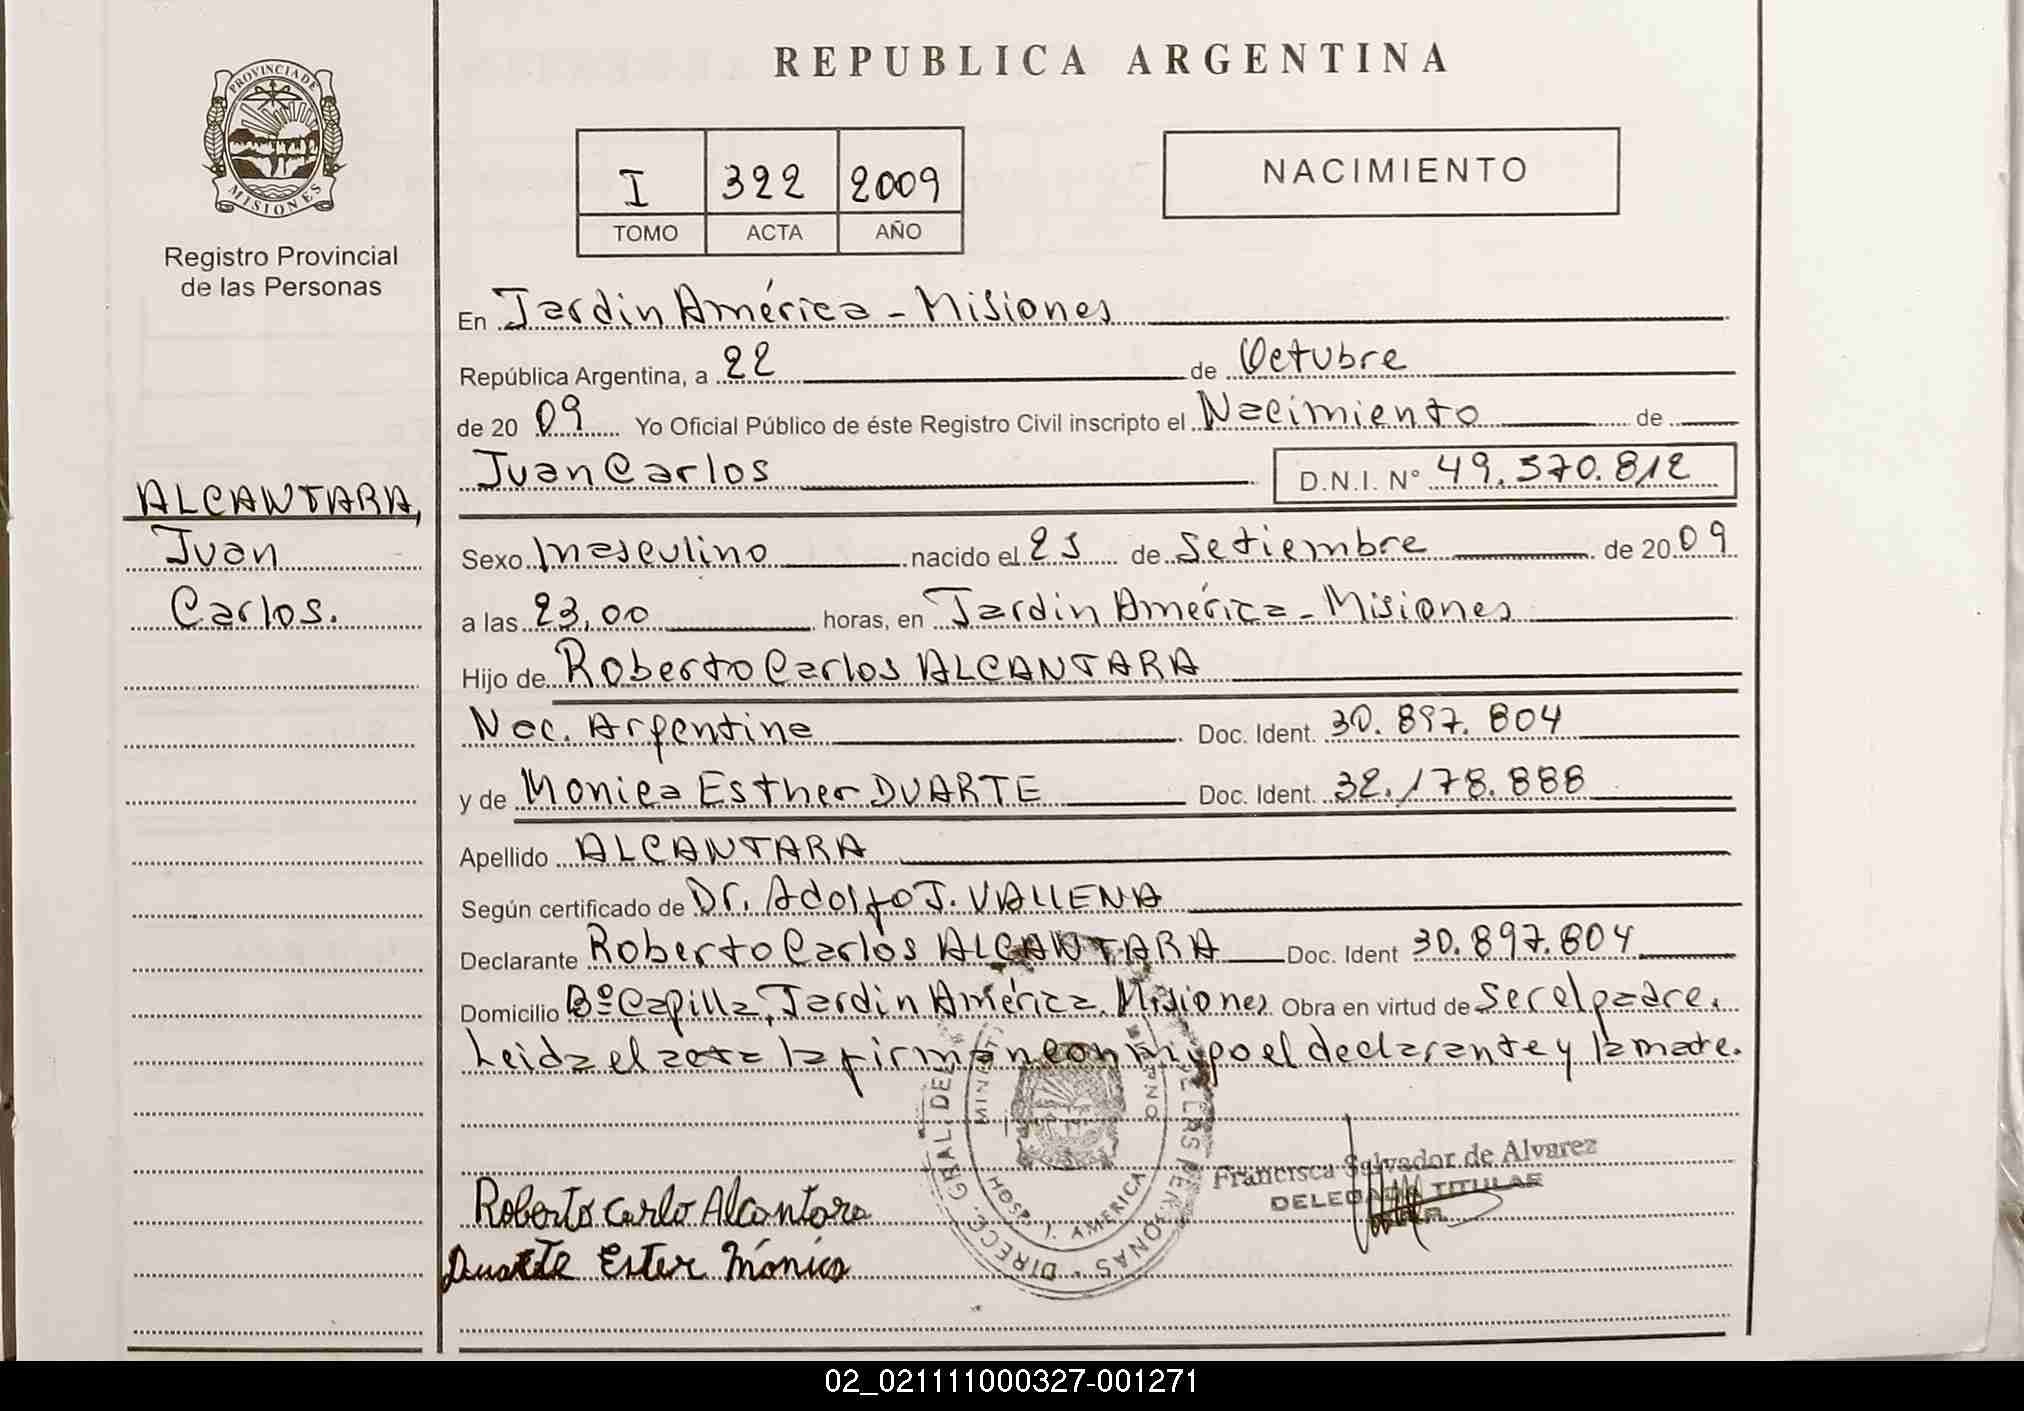 REPUBLICA ARGENTINA
PROVINCIA DE
MISIONES
Registro Provincial
de las Personas
I 322 2009
TOMO ACTA AÑO
NACIMIENTO
ALCANTARA,
Juan
Carlos.
En Jardin América - Misiones
República Argentina, a 22 de Octubre
de 20 09 Yo Oficial Público de éste Registro Civil inscripto el Nacimiento de
Juan Carlos D.N.I. Nº 49.570.812
Sexo masculino nacido el 25 de Setiembre de 20 09
a las 23,00 horas, en Jardin América - Misiones
Hijo de Roberto Carlos ALCANTARA
Nac. Argentina Doc. Ident. 30.897.804
y de Monica Esther DUARTE Doc. Ident. 32.178.888
Apellido ALCANTARA
Según certificado de Dr. Adolfo J. VALLENA
Declarante Roberto Carlos ALCANTARA Doc. Ident 30.897.804
Domicilio Bº Capilla, Jardin América, Misiones Obra en virtud de ser el padre.
Leida el acta la firman conmigo el declarante y la madre.
DIRECC. GRAL. DE LAS PERSONAS
HOSP. J. AMERICA
Francisca Salvador de Alvarez
DELEGADA TITULAR
Roberto Carlo Alcantara
Duarte Ester Mónica
02_021111000327-001271